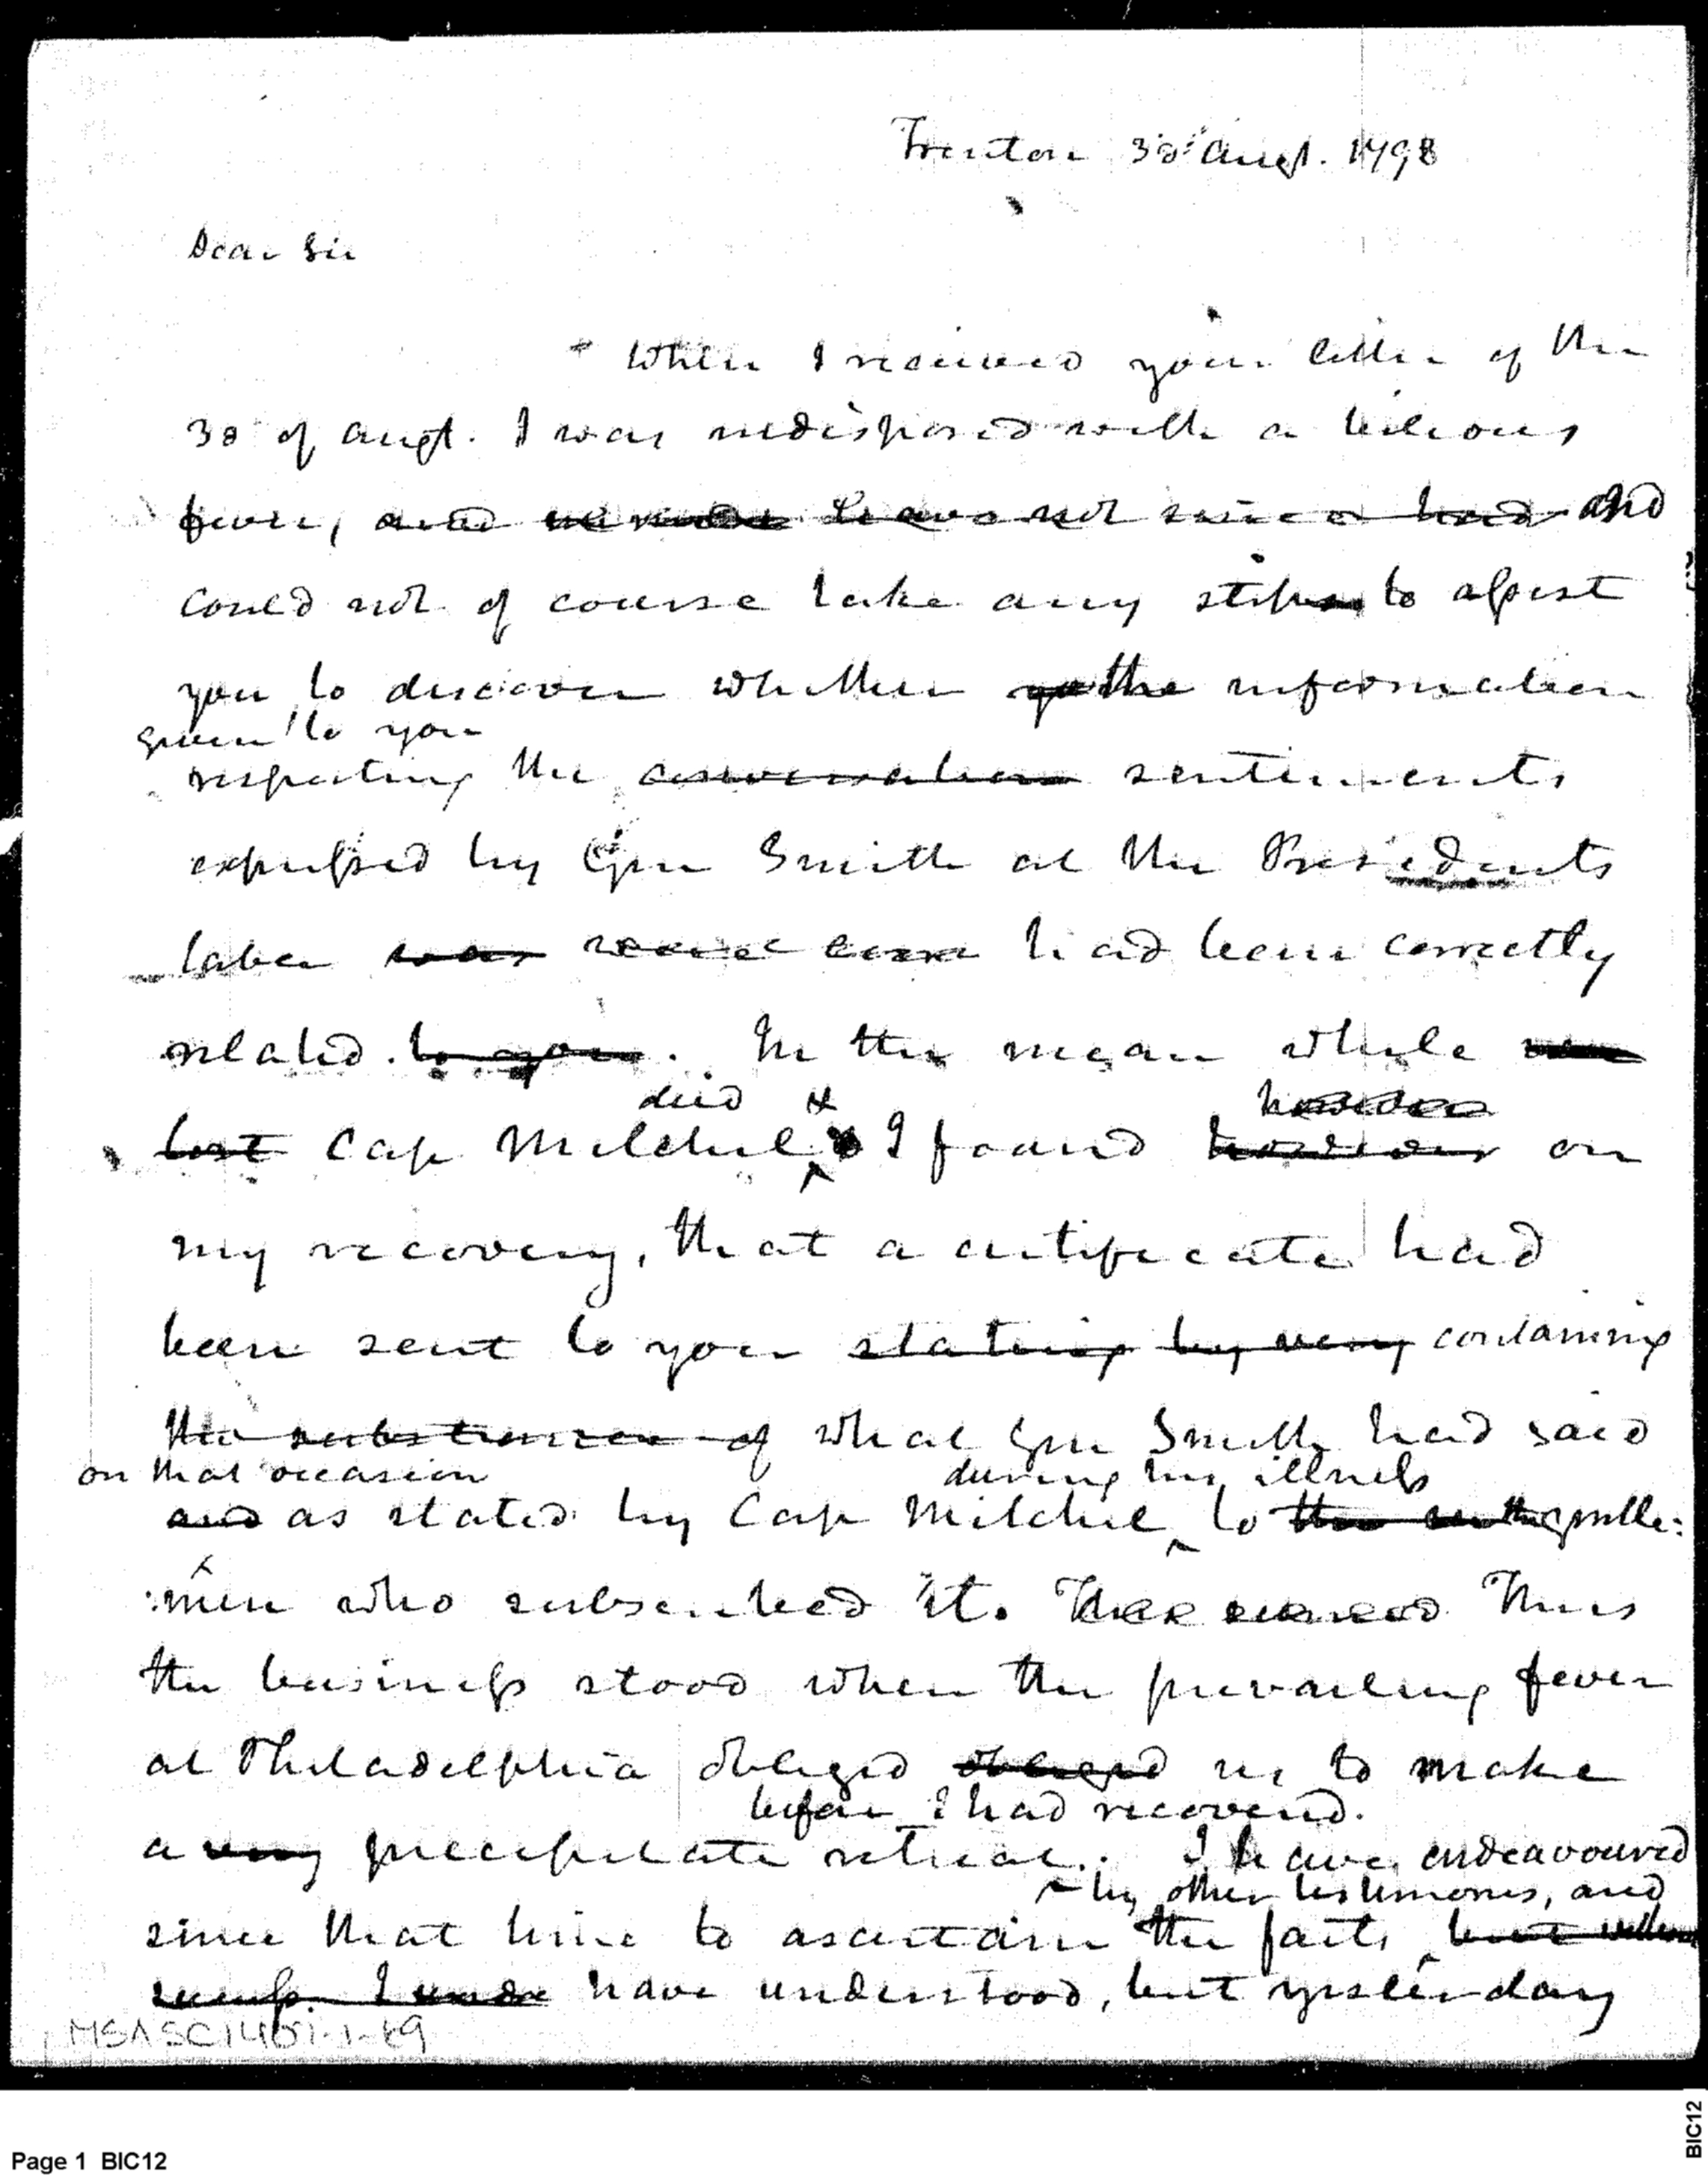 Trenton 30 Augt. 1798
Dear Sir
When I received your letter of the
30 of Augt. I was indisposed with a bilious
fever, and have not since had and
could not of course take any steps to assist
you to discover whether the information
given to you
respecting the conversation sentiments
expressed by Gen Smith at the Presidents
table was had been correctly
related to you. In the mean while
died
lost Cap Mitchel I found however on
however
my recovery, that a certificate had
been sent to you stating by way containing
the substance of what Gen Smith had said
on that occasion during his illness
and as stated by Cap Mitchel to the gentle:
:men who subscribed it. Thus
the business stood when the prevailing fever
at Philadelphia obliged obliged us to make
before I had recovered.
a very precipitate retreat. I have endeavoured
by other testimonies, and
since that time to ascertain the facts but without
success. I have understood, but yesterday
MSA SC 1401-1-89
Page 1 BIC12
BIC12